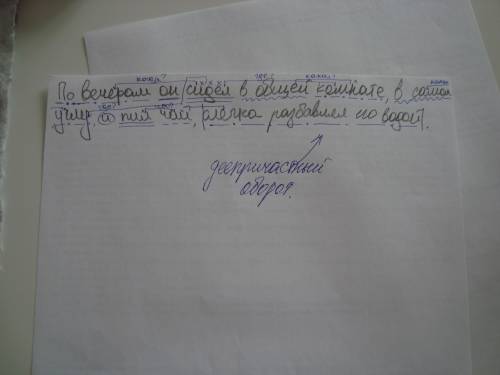 когда? где? какой?
По вечерам он сидел в общей комнате, в самом
углу, и пил чай, слегка разбавляя его водой.
деепричастный
оборот.